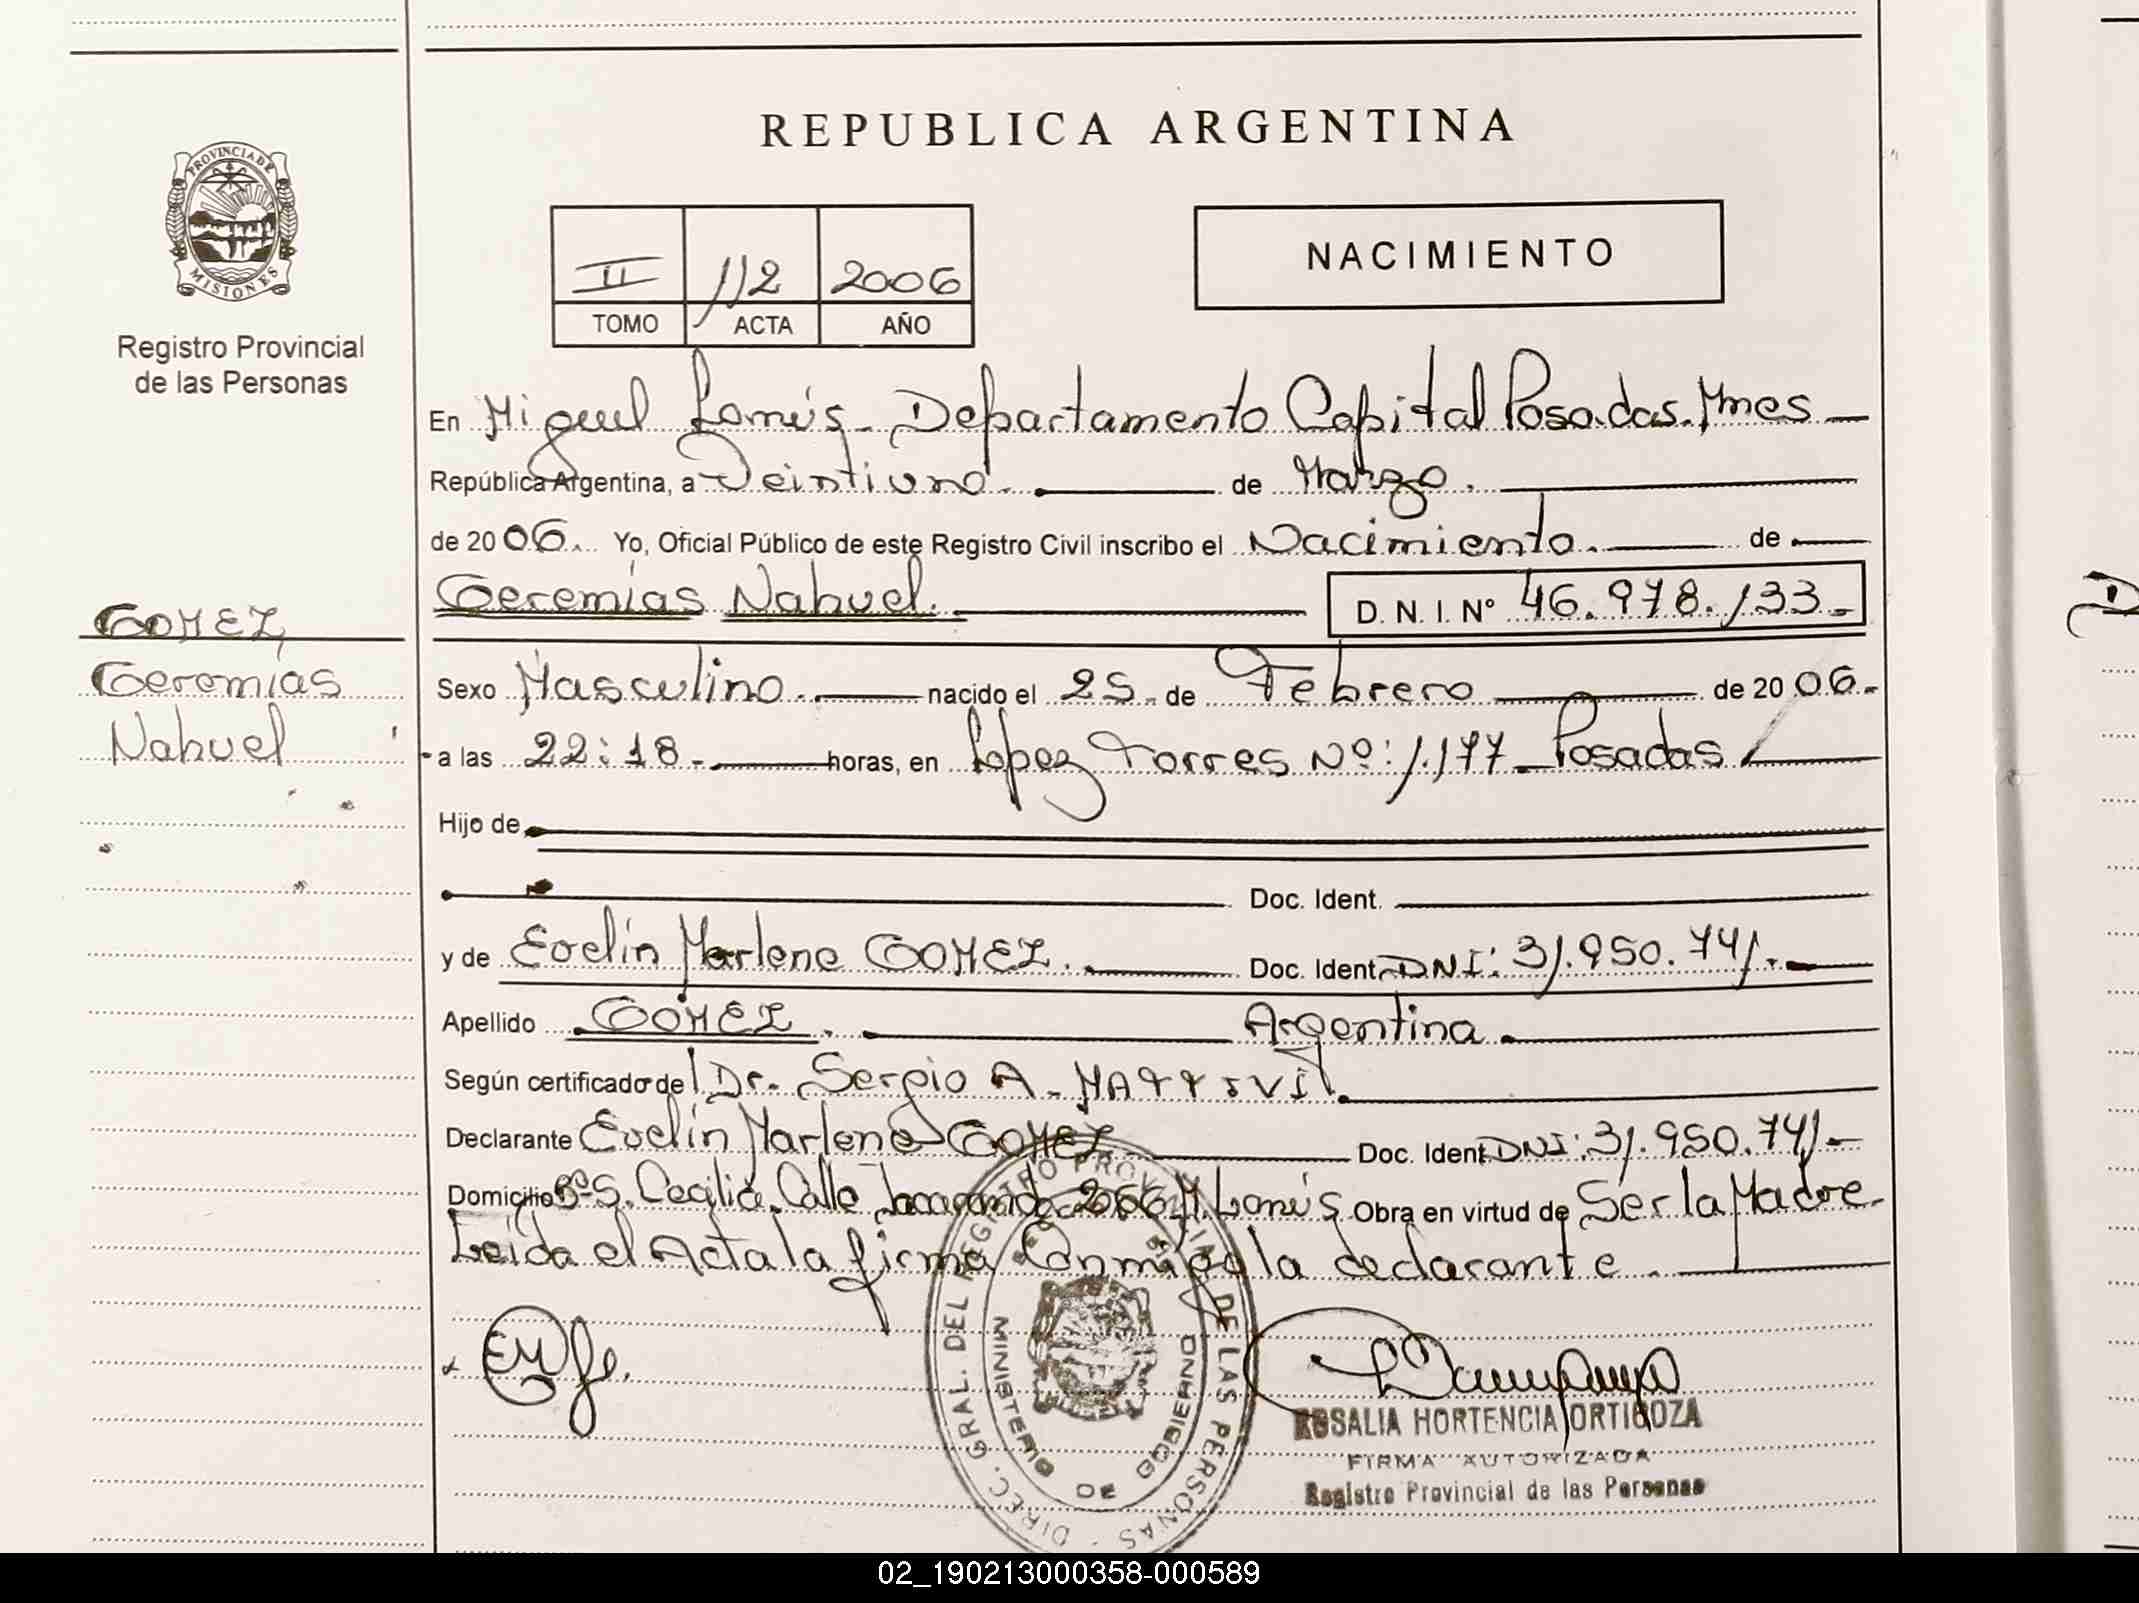 REPUBLICA ARGENTINA
PROVINCIA DE MISIONES
Registro Provincial
de las Personas
II 112 2006
TOMO ACTA AÑO
NACIMIENTO
En Miguel Lanús - Departamento Capital Posadas. Mnes
República Argentina, a Veintiuno de Marzo.
de 2006. Yo, Oficial Público de este Registro Civil inscribo el Nacimiento. de
Geremías Nahuel. D. N. I. N° 46.978.133.-
GOMEZ,
Geremías
Nahuel
Sexo Masculino. nacido el 25 - de Febrero de 2006.-
- a las 22:18 - horas, en Lopez Torres Nº: 1.177 - Posadas
Hijo de
Doc. Ident.
y de Evelin Marlene GOMEZ. Doc. Ident. DNI: 31.950.741.-
Apellido GOMEZ. Argentina.
Según certificado del Dr. Sergio A.
Declarante Evelin Marlene GOMEZ Doc. Ident. DNI: 31.950.741.-
Domicilio Bº S. Cecilia. Calle Jacaranda 266 M. Lanús Obra en virtud de Ser la Madre.
Leída el Acta la firma Conmigo la declarante.
DIREC. GRAL. DEL REGISTRO PROVINCIAL DE LAS PERSONAS
MINISTERIO DE GOBIERNO
ROSALIA HORTENCIA ORTIGOZA
FIRMA AUTORIZADA
Registro Provincial de las Personas
02_190213000358-000589